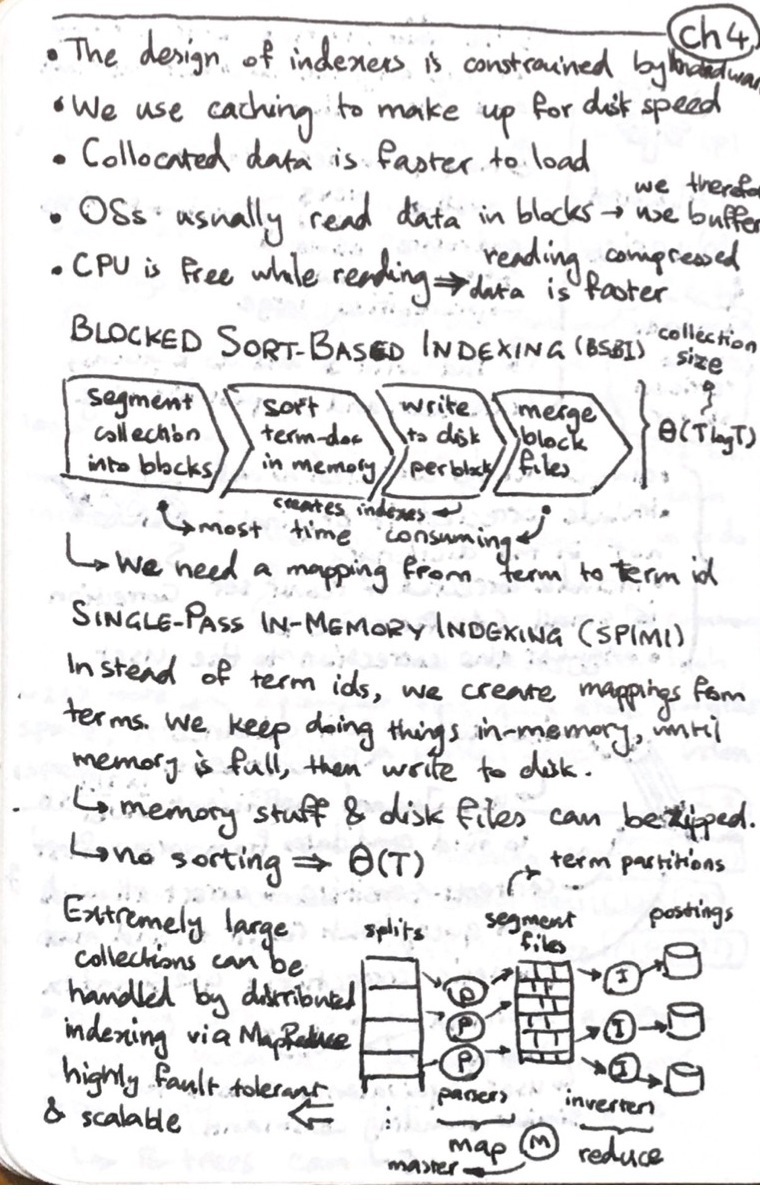 ch 4
• The design of indexers is constrained by hardware
• We use caching to make up for disk speed
• Collocated data is faster to load
• OSs usually read data in blocks → we therefo use buffer
• CPU is free while reading ⇒ reading compressed data is faster
BLOCKED SORT-BASED INDEXING (BSBI)
collection
size
segment
collection
into blocks
sort
term-doc
in memory
write
to disk
per block
merge
block
files
Θ(T log T)
creates indexes
most time consuming
↳ We need a mapping from term to term id
SINGLE-PASS IN-MEMORY INDEXING (SPIMI)
Instead of term ids, we create mappings from
terms. We keep doing things in-memory, until
memory is full, then write to disk.
↳ memory stuff & disk files can be zipped.
↳ no sorting ⇒ Θ(T)
Extremely large
collections can be
handled by distributed
indexing via MapReduce
highly fault tolerant
& scalable
⇐
term partitions
splits
segment
files
postings
P
P
P
I
I
I
parsers
inverters
map
M
reduce
master